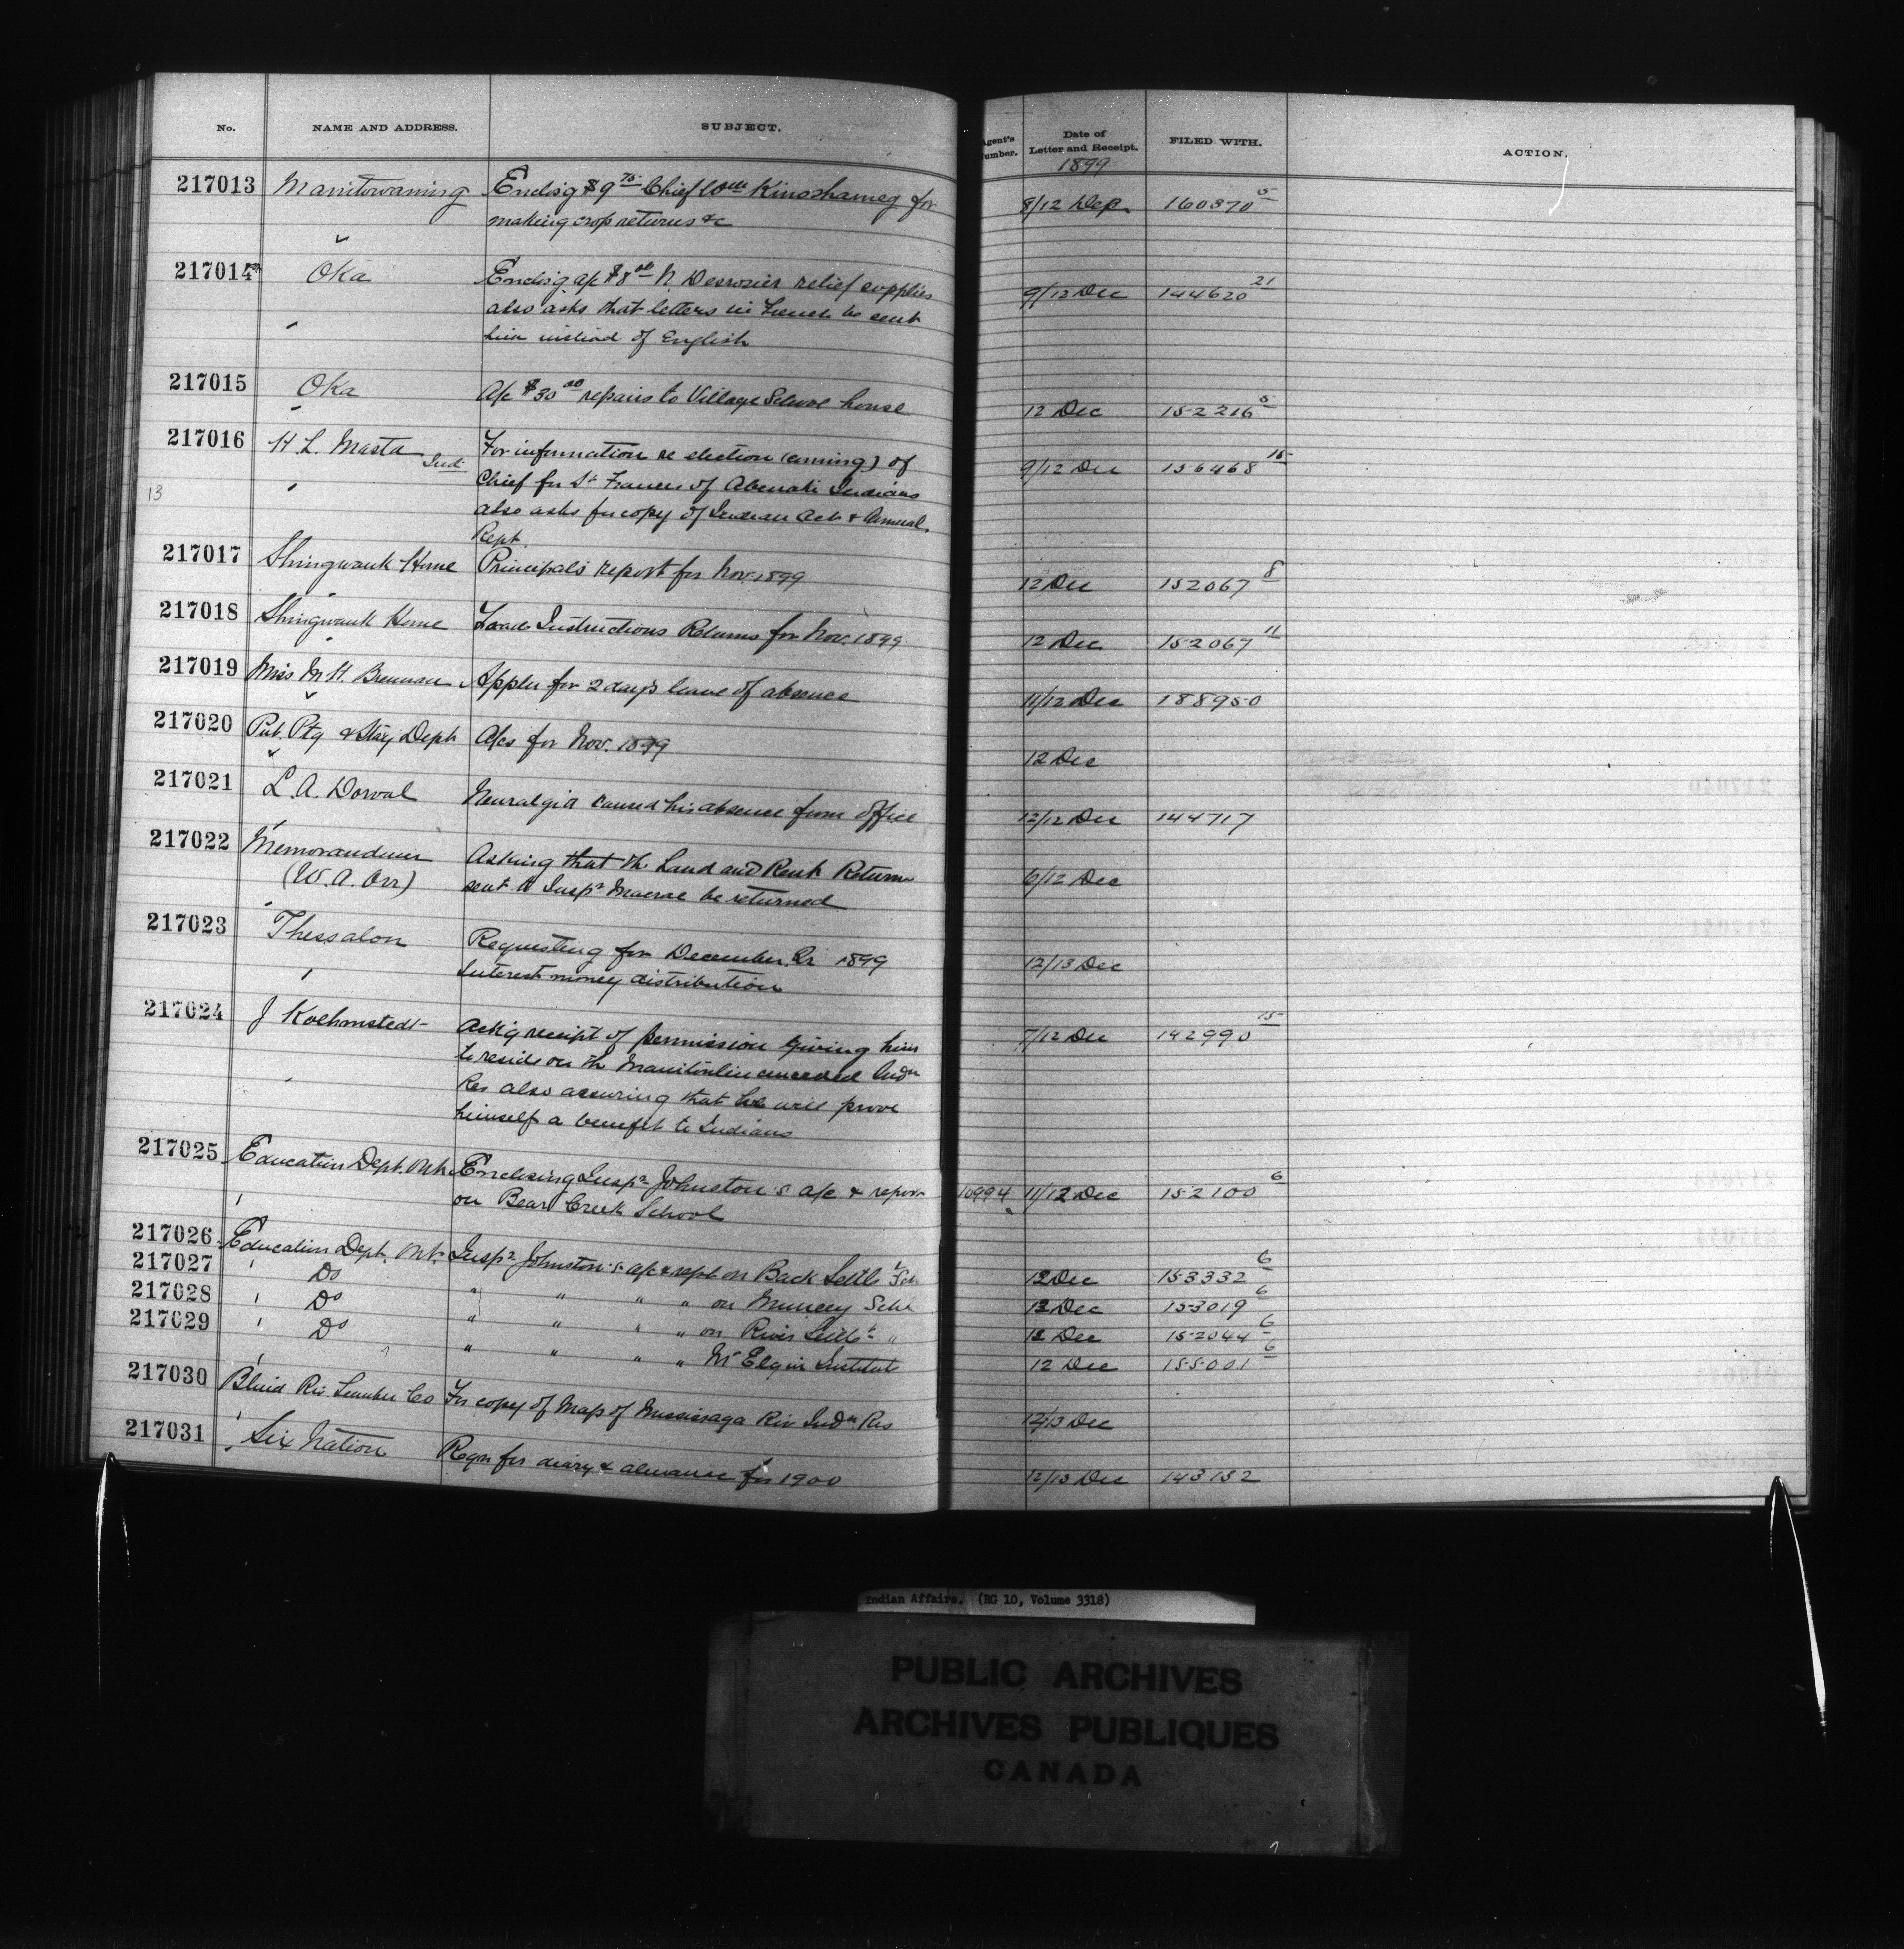 No. NAME AND ADDRESS. SUBJECT. Agent's Number. Date of Letter and Receipt. FILED WITH. ACTION.
1899
217013 Manitowaning Enclos'g $9 75 Chief Wm Kinoshameg for 8/12 Dec 160370 5
making crop returns &c
217014 Oka Enclos'g a/c $8 00 N. Desrosier relief supplies 9/12 Dec 144620 21
also asks that letters in French be sent
him instead of English
217015 Oka A/c $30 00 repairs to Village School house 12 Dec 152216 5
217016 H. L. Masta Ind. For information re election (coming) of 9/12 Dec 156468 15
13 Chief for St Francis of Abenaki Indians
also asks for copy of Indian Act & Annual
Rept.
217017 Shingwauk Home Principal's report for Nov. 1899 12 Dec 152067 8
217018 Shingwauk Home Trade Instructions Returns for Nov. 1899 12 Dec 152067 11
217019 Miss M. H. Brennan Applies for 2 day's leave of absence 11/12 Dec 188950
217020 Pub. Ptg & Sta'y Dept A/cs for Nov. 1899 12 Dec
217021 L. A. Dorval Neuralgia caused his absence from office 12/12 Dec 144717
217022 Memorandum Asking that the Land and Rent Return 6/12 Dec
(W. A. Orr) sent to Inspr Macrae be returned
217023 Thessalon Requesting for December Qr 1899 12/13 Dec
Interest money distribution
217024 J Koehmstedt Ack'g receipt of permission giving him 7/12 Dec 142990 15
to reside on the Manitoulin unceded Indn
Res also assuring that he will prove
himself a benefit to Indians
217025 Education Dept. Ont. Enclosing Inspr Johnston's a/c & report 10994 11/12 Dec 152100 6
on Bear Creek School
217026 Education Dept. Ont. Inspr Johnston's a/c & rept on Back Settlt Sch 12 Dec 153332 6
217027 Do " " " " on Muncey Schl 12 Dec 153019 6
217028 Do " " " " on River Settlt " 12 Dec 152044 6
217029 Do " " " " Mt Elgin Institut 12 Dec 155001 6
217030 Blind Riv Lumber Co For copy of Map of Mississaga Riv Indn Res 12/13 Dec
217031 Six Nation Reqn for diary & almanac for 1900 12/13 Dec 143132
Indian Affairs. (RG 10, Volume 3318)
PUBLIC ARCHIVES
ARCHIVES PUBLIQUES
CANADA